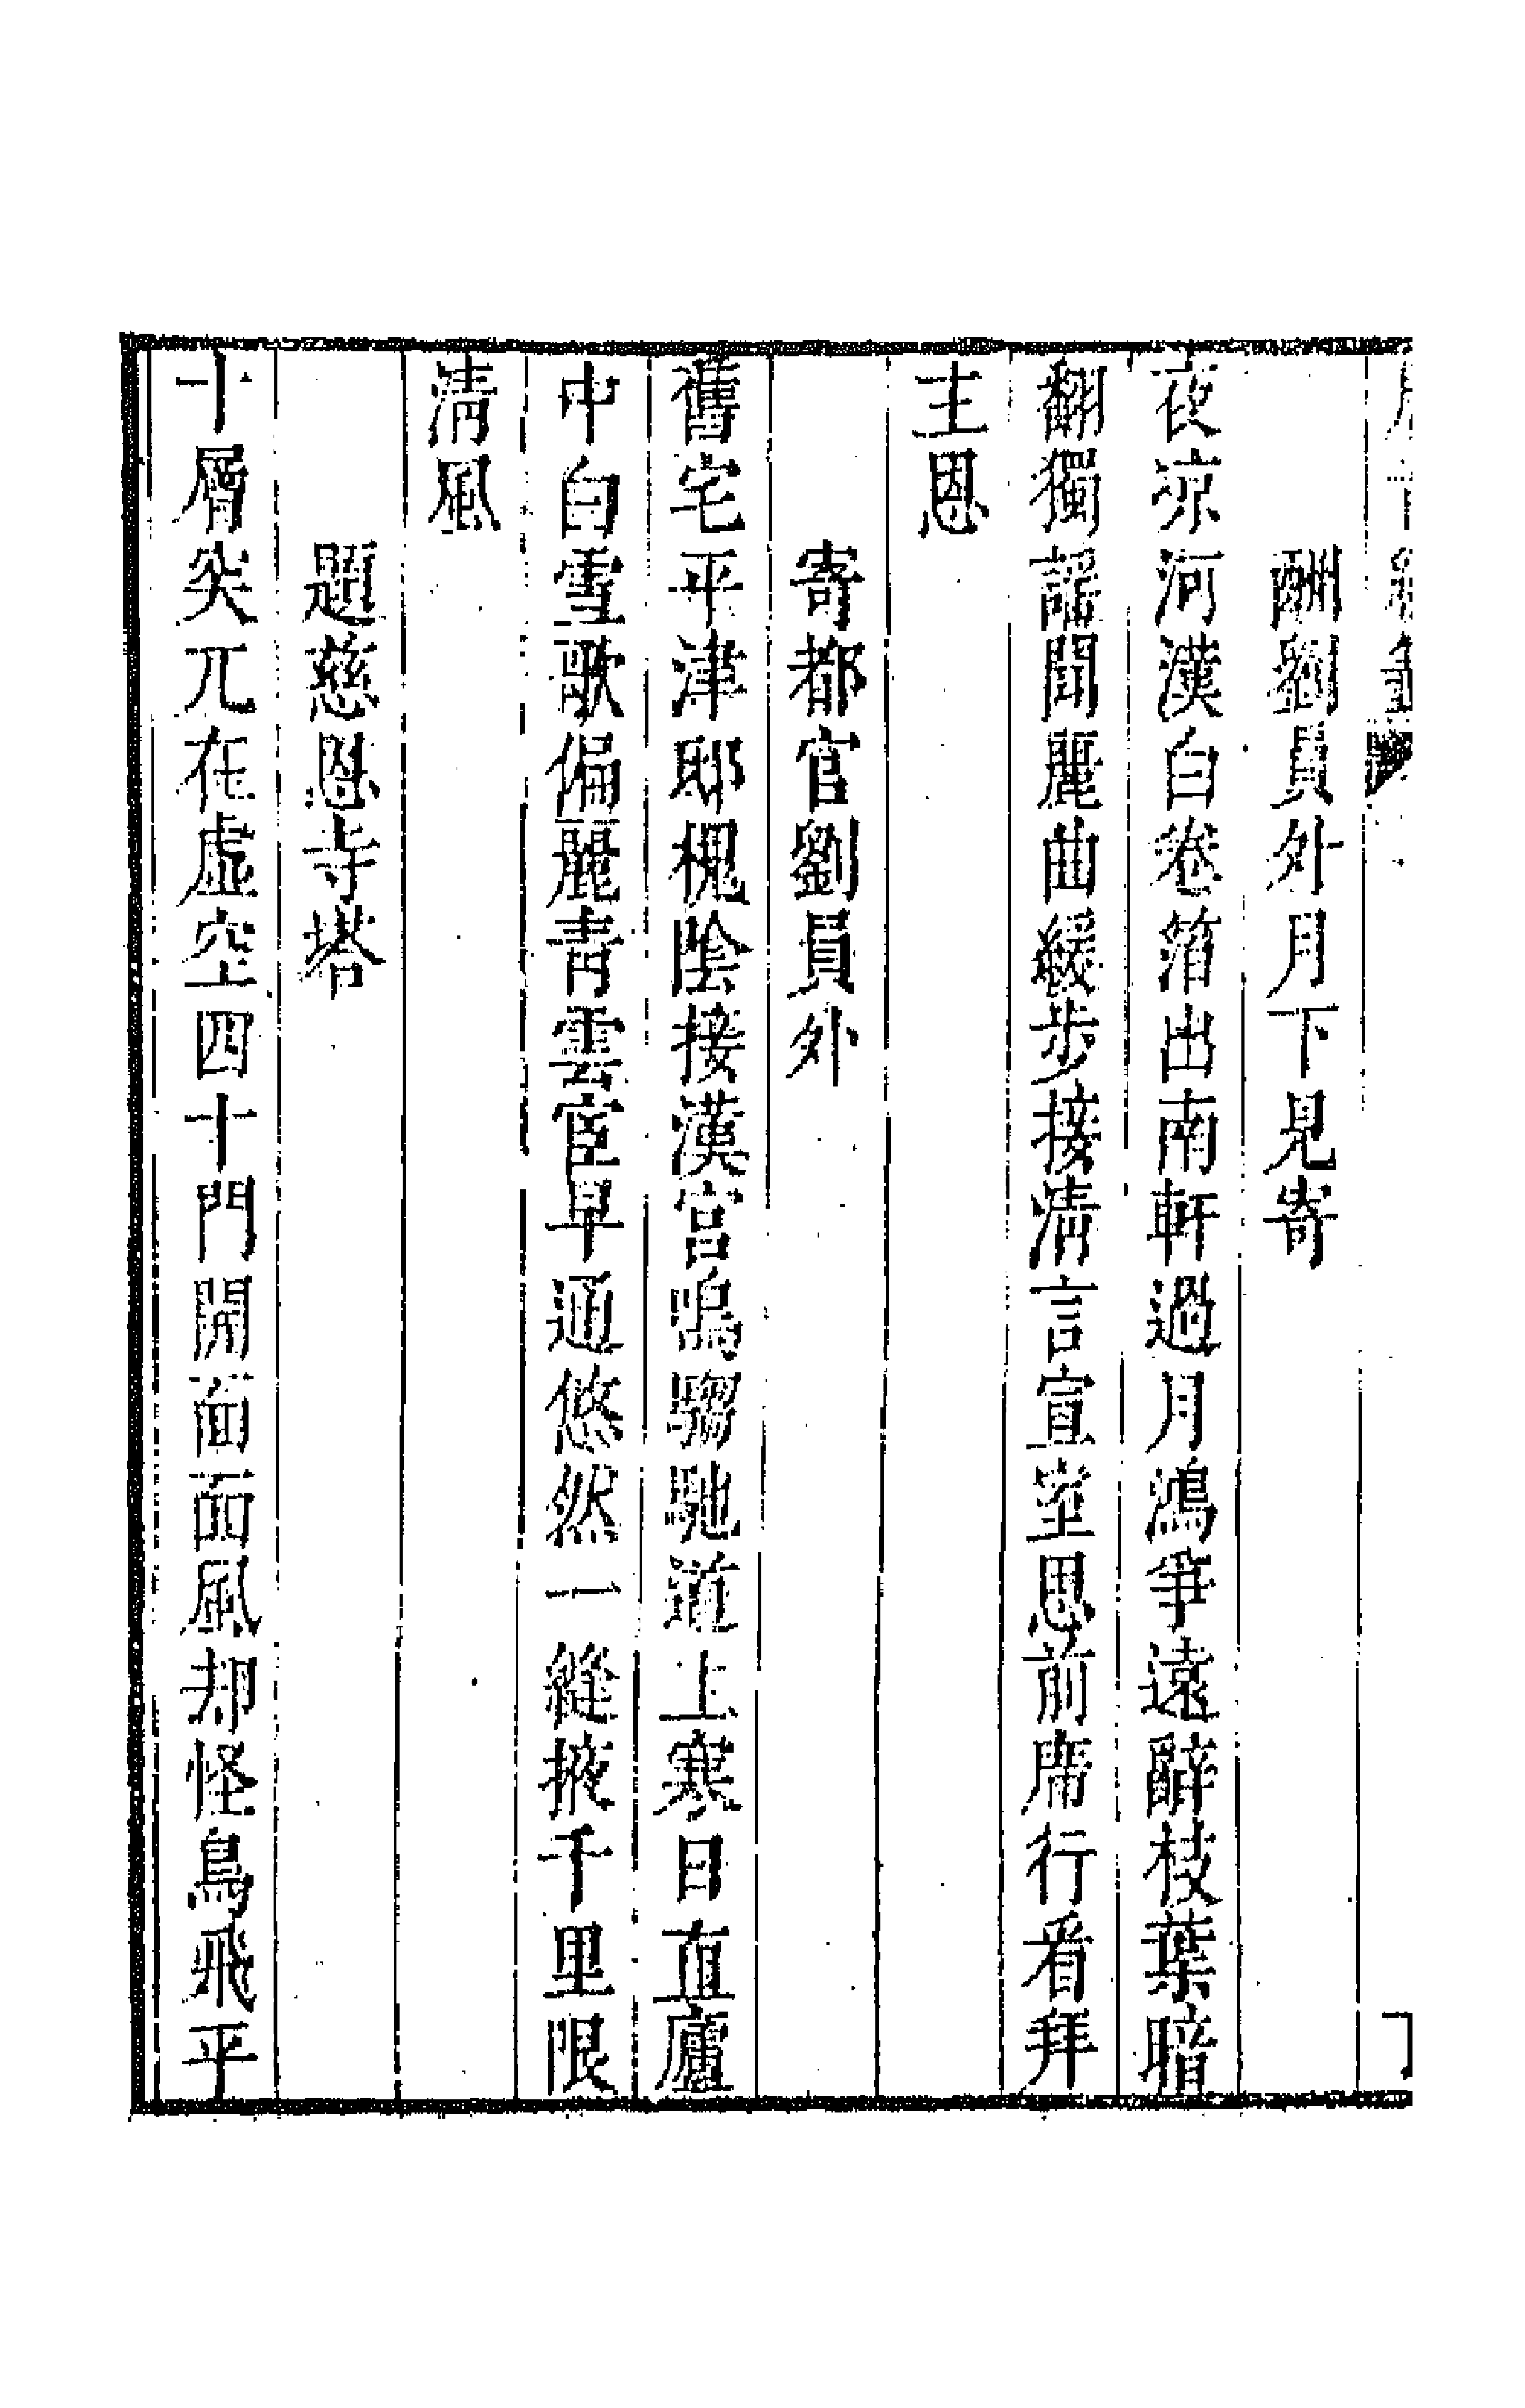 酬劉員外月下見寄
夜凉河漢白卷箔出南軒過月鴻爭遠辭枝葉暗
翻獨謡聞麗曲緩步接清言宣室思前席行看拜
主恩
寄都官劉員外
舊宅平津邸槐陰接漢宫鳴騶馳道上寒日直廬
中白雪歌偏麗青雲宦早通悠然一縫掖千里限
清風
題慈恩寺塔
十層突兀在虚空四十門開面面風却怪鳥飛平